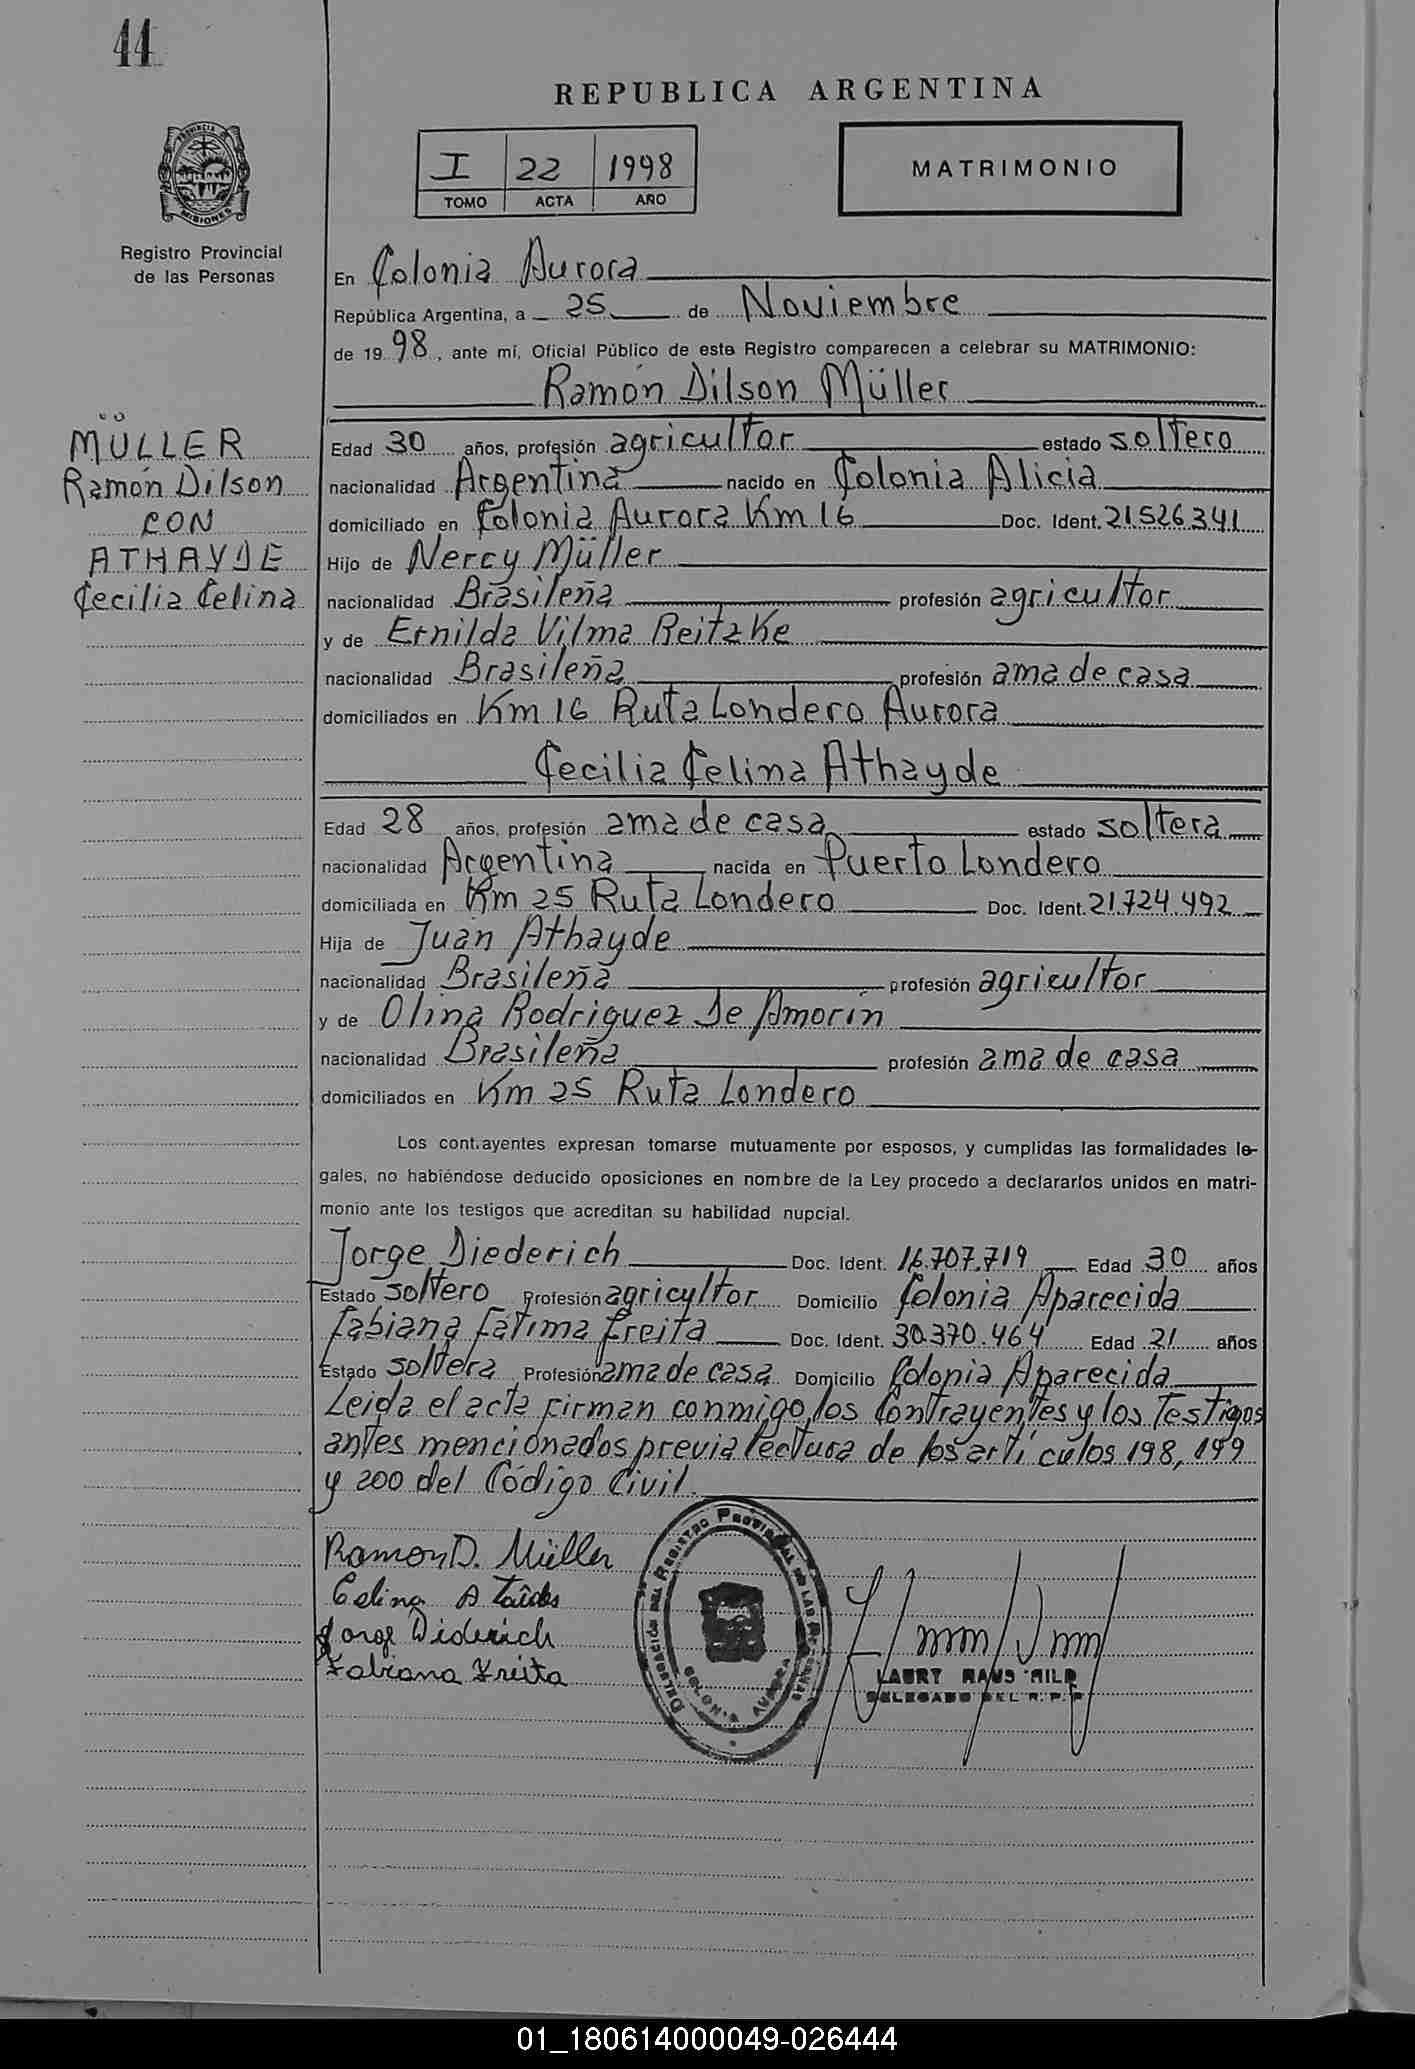 44
REPUBLICA ARGENTINA
I 22 1998
TOMO ACTA AÑO
MATRIMONIO
PROVINCIA DE
MISIONES
Registro Provincial
de las Personas
En Colonia Aurora
República Argentina, a 25 de Noviembre
de 1998, ante mí, Oficial Público de este Registro comparecen a celebrar su MATRIMONIO:
Ramón Dilson Müller
MÜLLER
Ramón Dilson
CON
ATHAYDE
Cecilia Celina
Edad 30 años, profesión agricultor estado soltero
nacionalidad Argentina nacido en Colonia Alicia
domiciliado en Colonia Aurora Km 16 Doc. Ident. 21.526.341
Hijo de Nercy Müller
nacionalidad Brasileña profesión agricultor
y de Ernilda Vilma Reitzke
nacionalidad Brasileña profesión ama de casa
domiciliados en Km 16 Ruta Londero Aurora
Cecilia Celina Athayde
Edad 28 años, profesión ama de casa estado soltera
nacionalidad Argentina nacida en Puerto Londero
domiciliada en Km 25 Ruta Londero Doc. Ident. 21.724.492
Hija de Juan Athayde
nacionalidad Brasileña profesión agricultor
y de Olina Rodriguez De Amorín
nacionalidad Brasileña profesión ama de casa
domiciliados en Km 25 Ruta Londero
Los cont.ayentes expresan tomarse mutuamente por esposos, y cumplidas las formalidades le-
gales, no habiéndose deducido oposiciones en nombre de la Ley procedo a declararlos unidos en matri-
monio ante los testigos que acreditan su habilidad nupcial.
Jorge Diederich Doc. Ident. 16.707.719 Edad 30 años
Estado soltero Profesión agricultor Domicilio Colonia Aparecida
Fabiana Fátima Freita Doc. Ident. 30.370.464 Edad 21 años
Estado soltera Profesión ama de casa Domicilio Colonia Aparecida
Leida el acta firman conmigo, los Contrayentes y los Testigos
antes mencionados previa lectura de los artículos 198, 199
y 200 del Código Civil.
Ramon D. Müller
Celina A Taídes
Jorge Diederich
Fabiana Freita
DELEGACIÓN DEL REGISTRO PROVINCIAL DE LAS PERSONAS
COLONIA AURORA
LAURY
DELEGADO DEL R.P.P
01_180614000049-026444